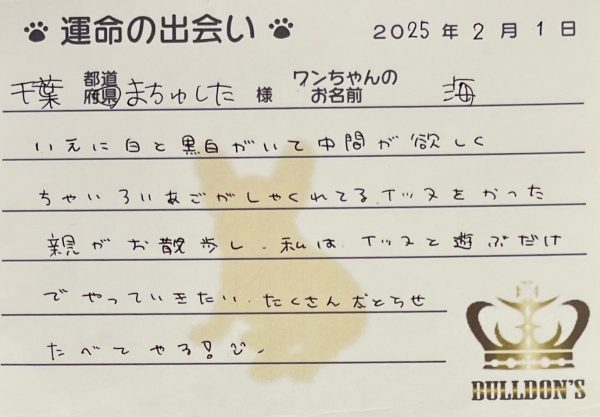 運命の出会い 2025年2月1日
千葉 都道府県 まちゅした 様 ワンちゃんのお名前 海
いえに白と黒白がいて中間が欲しく
ちゃいろいあごがしゃくれてる、イッヌをかった
親がお散歩し、私は、イッヌと遊ぶだけ
でやっていきたい、たくさん
たべてやる!
BULLDON'S